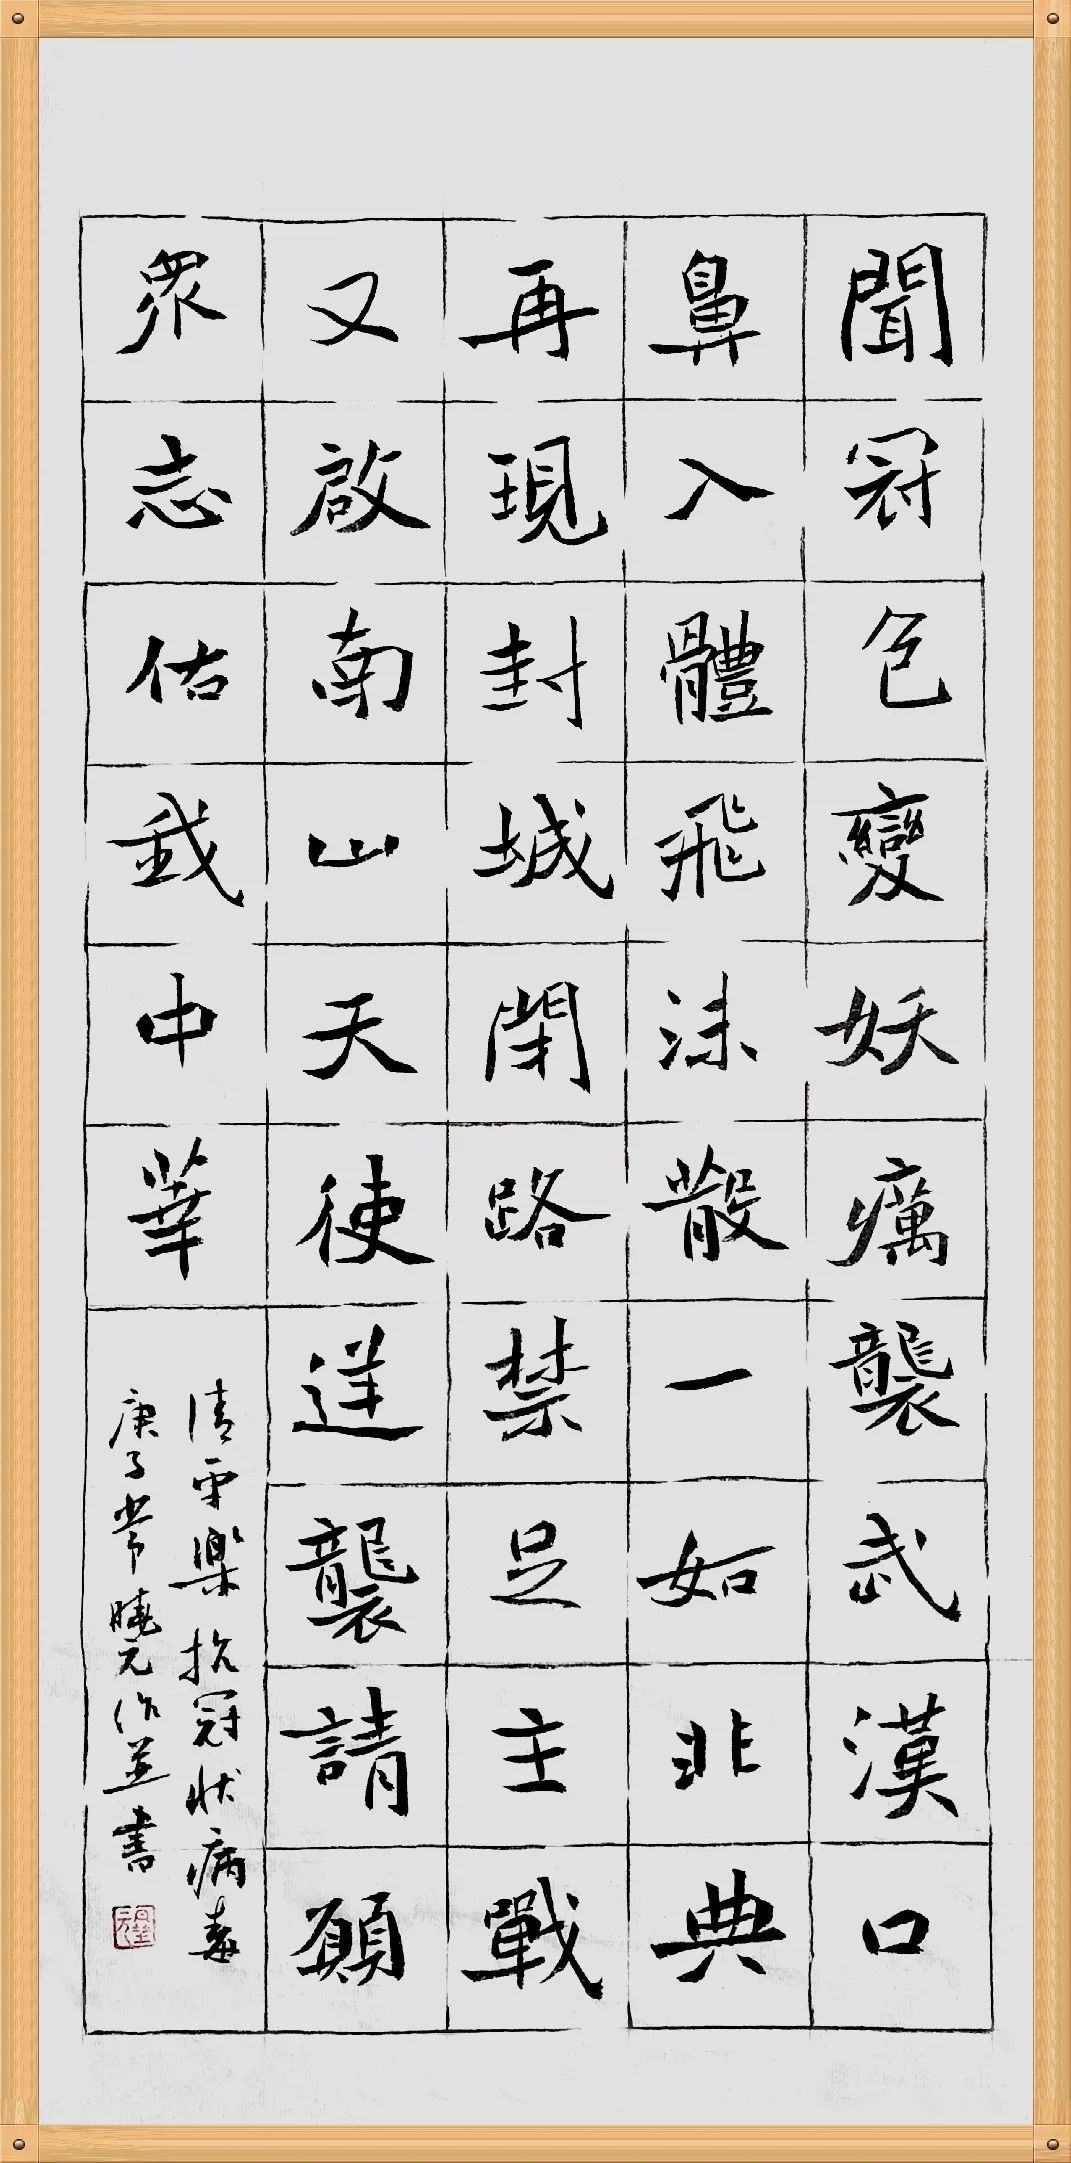 聞冠色變妖癘襲武漢口
鼻入體飛沫散一如非典
再現封城閉路禁足主戰
又啟南山天使逆襲請願
眾志佑我中華
清平樂 抗冠狀病毒
庚子常曉元作並書